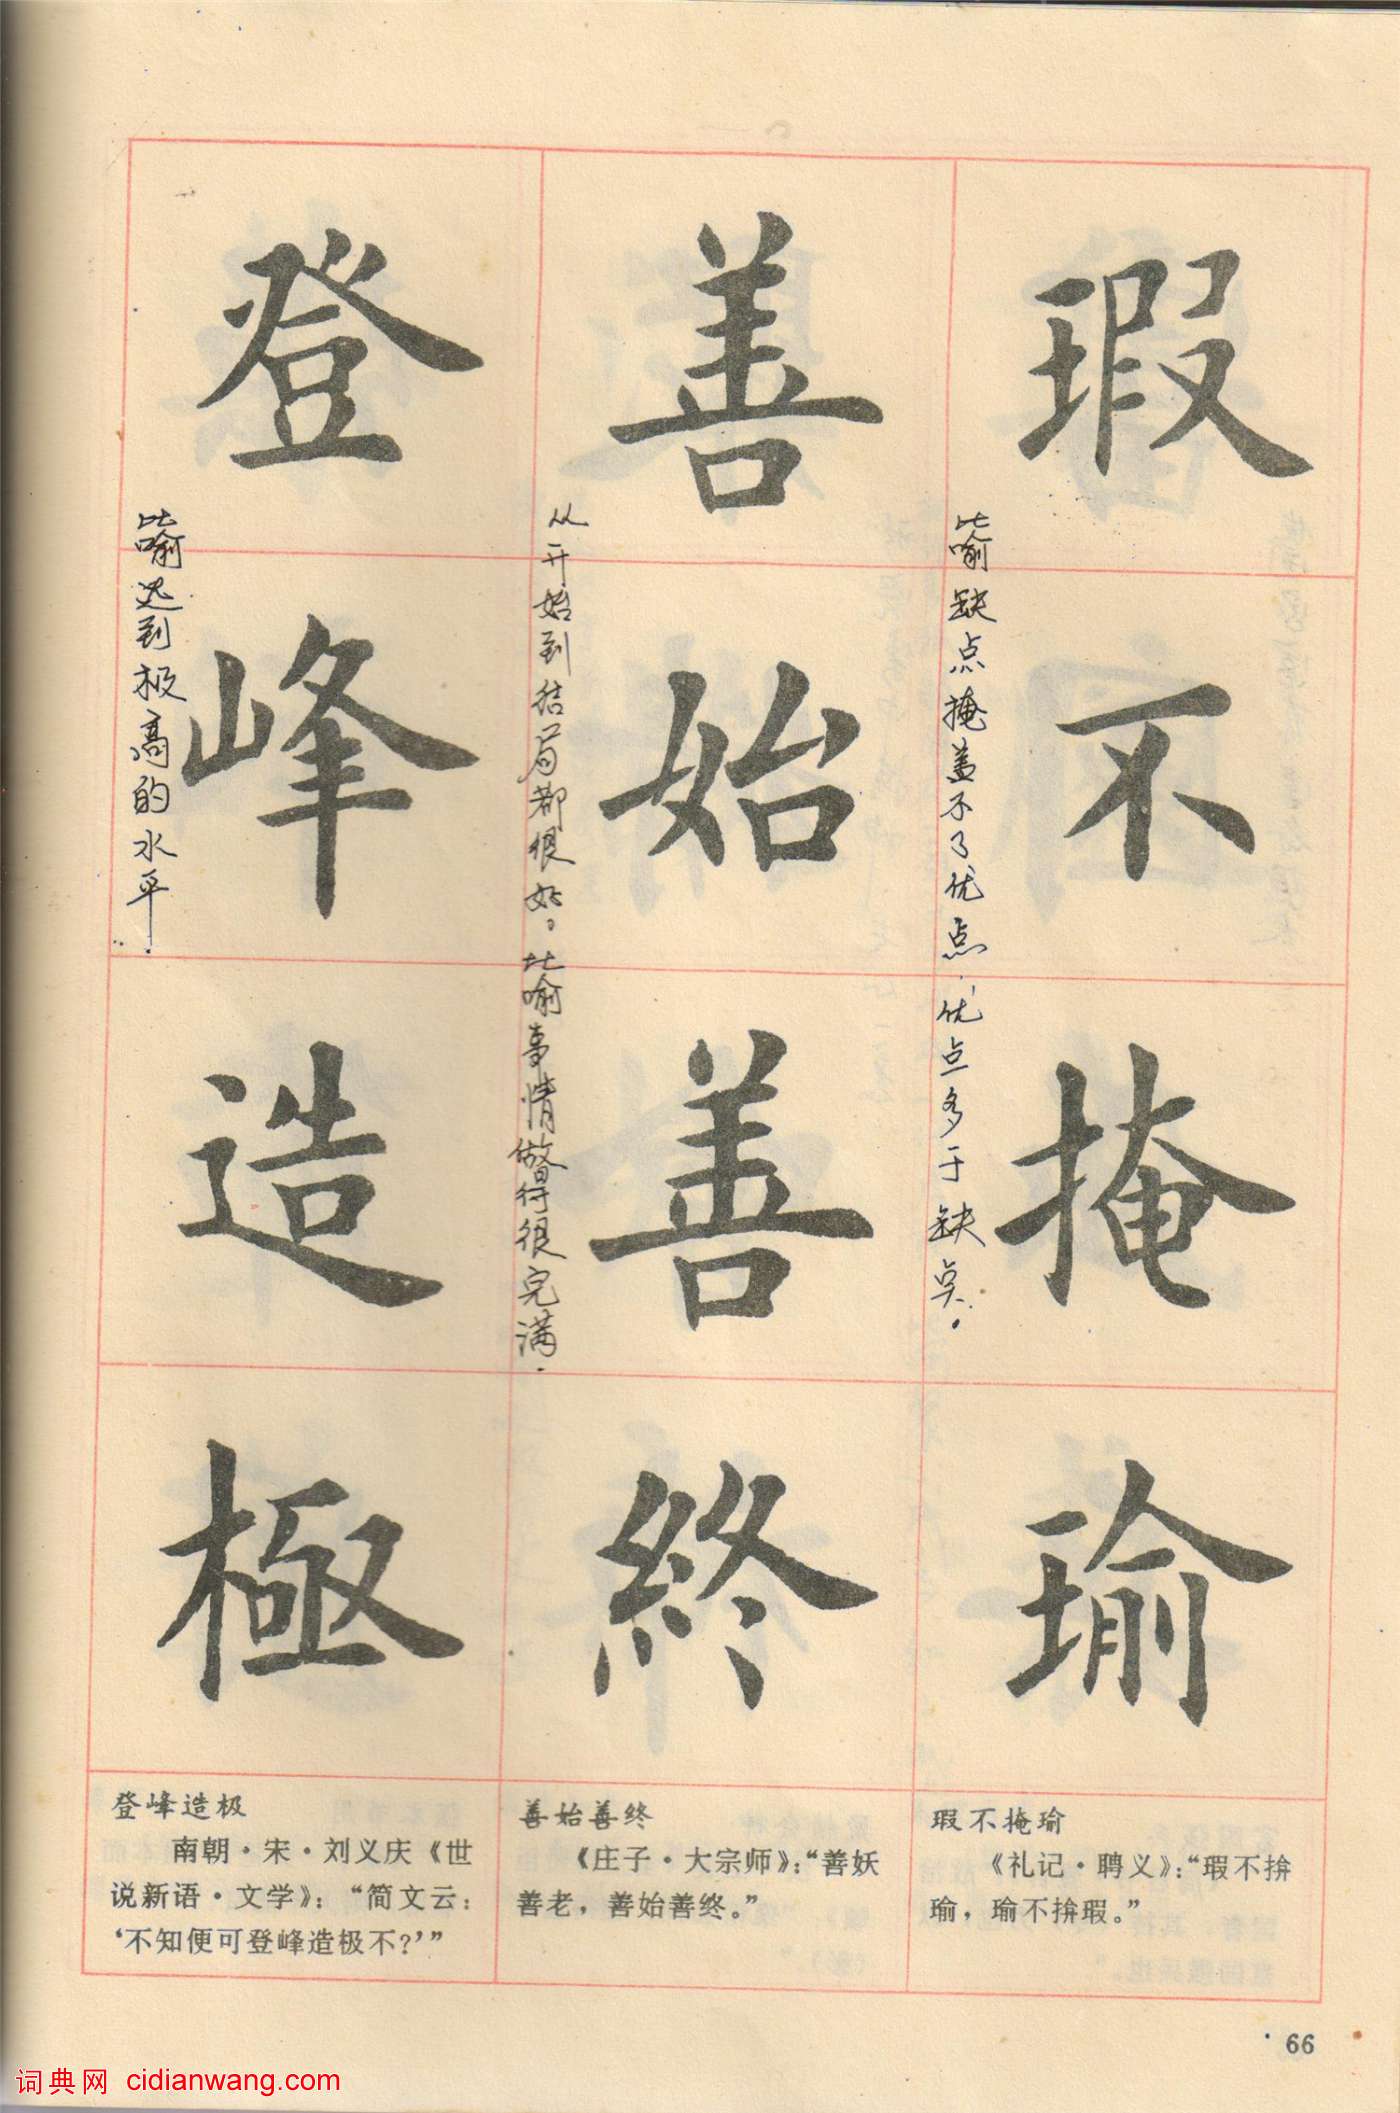 瑕不掩瑜
比喻缺点掩盖不了优点.优点多于缺点.
善始善終
从开始到结局都很好。比喻事情做得很完满.
登峰造極
比喻达到极高的水平.
瑕不掩瑜
《礼记·聘义》：“瑕不揜
瑜，瑜不揜瑕。”
善始善终
《庄子·大宗师》：“善妖
善老，善始善终。”
登峰造极
南朝·宋·刘义庆《世
说新语·文学》：“简文云：
‘不知便可登峰造极不？’”
66
词典网 cidianwang.com